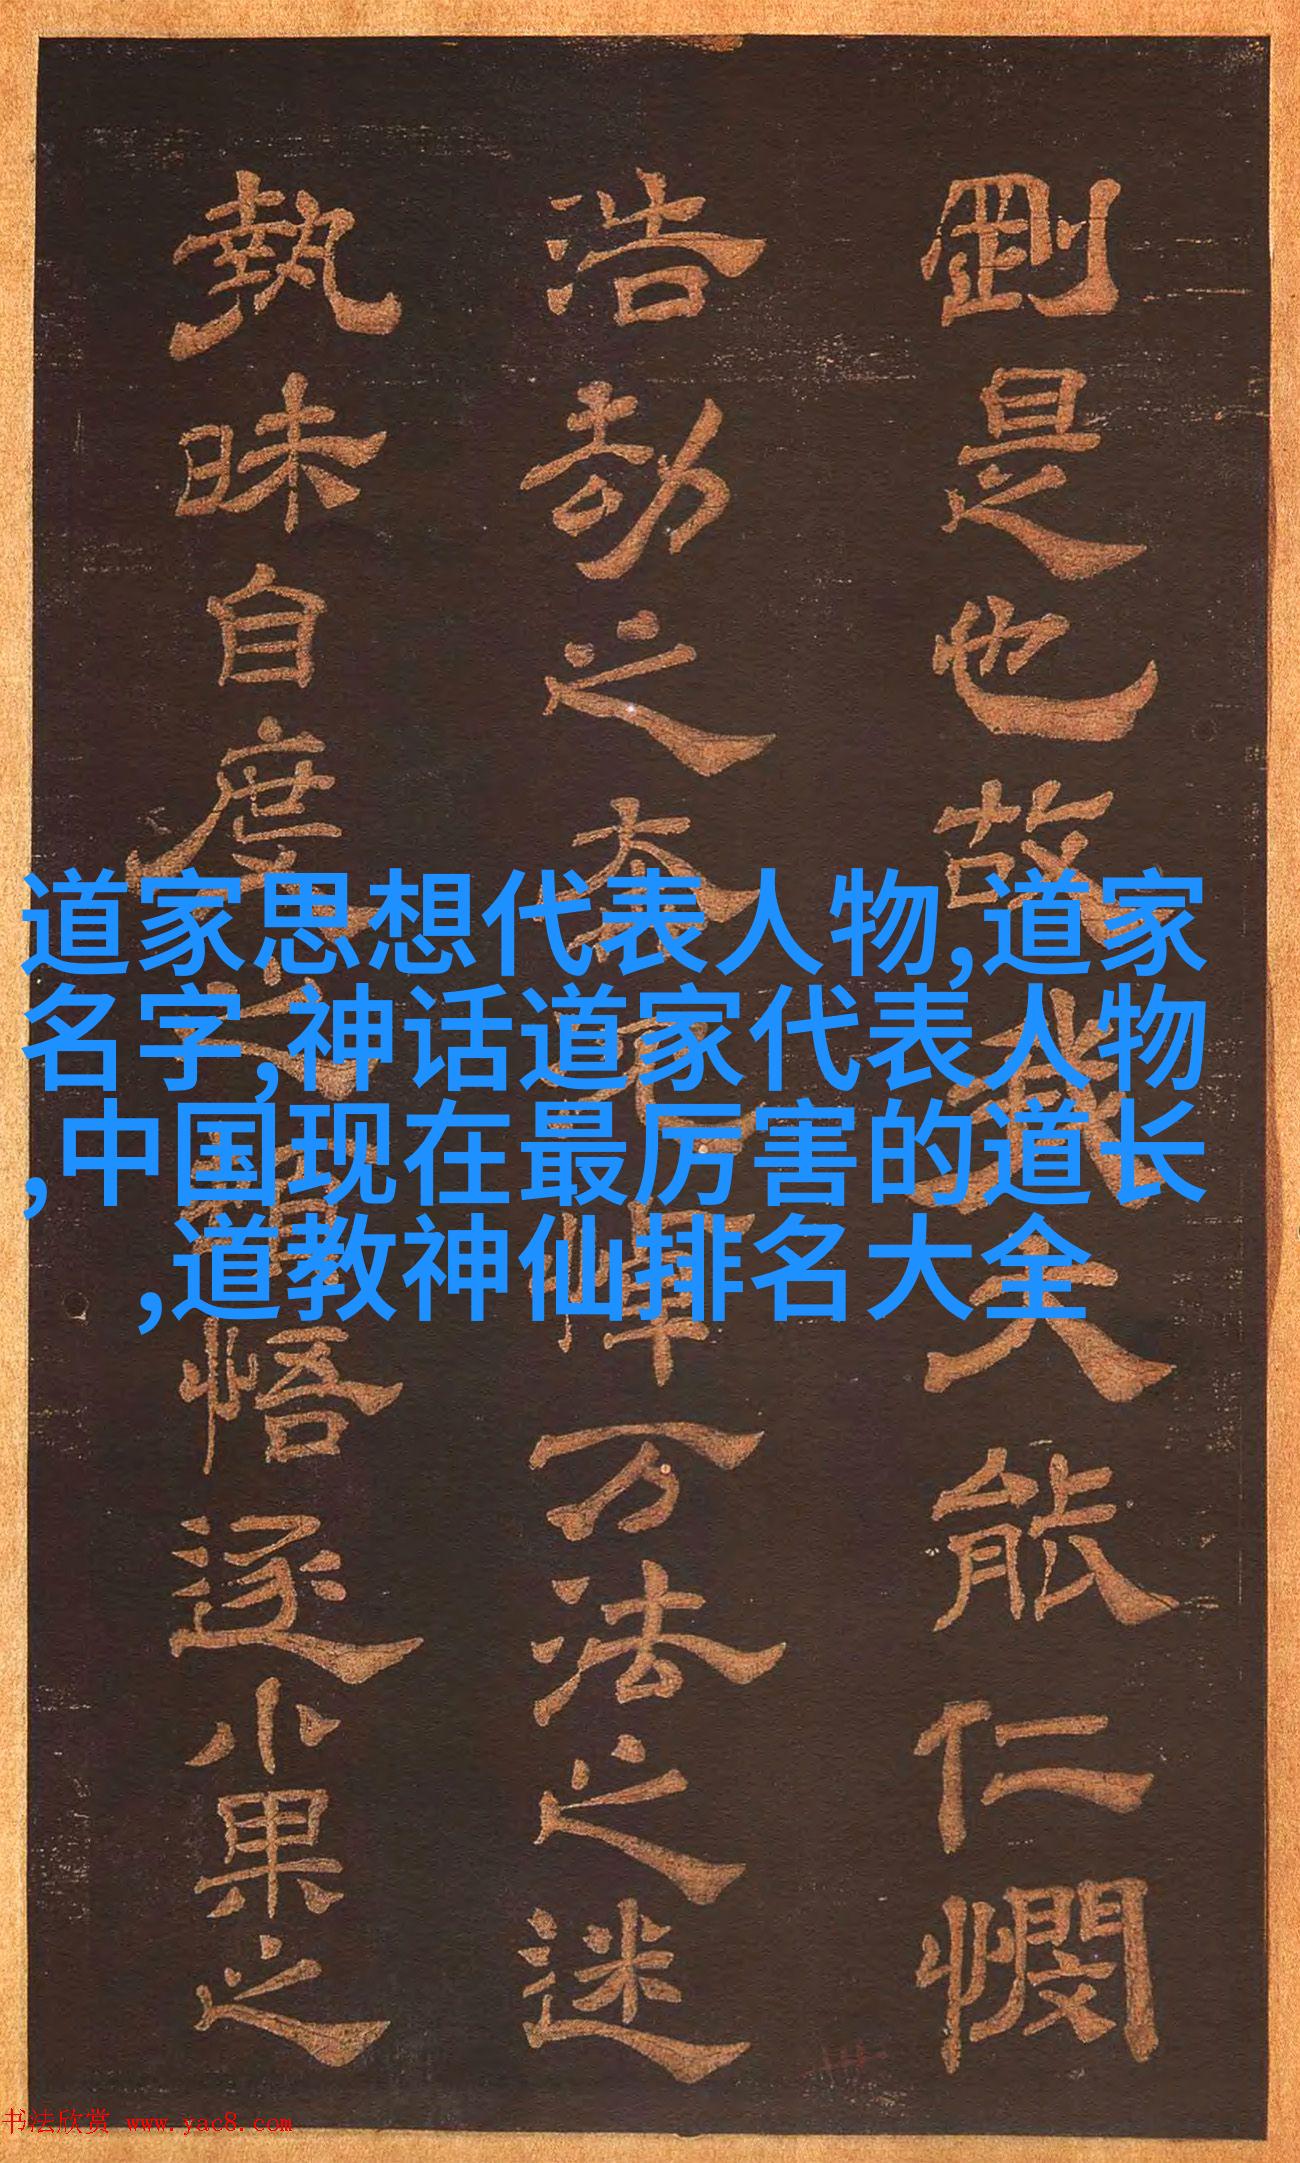 剛是也故我大能仁憫
浩劫之太憚万法之迷
執昧自度之悟逐小果之
道家思想代表人物,道家
名字,神话道家代表人物
,中国现在最厉害的道长
,道教神仙排名大全
书法欣赏 www.yac8.com